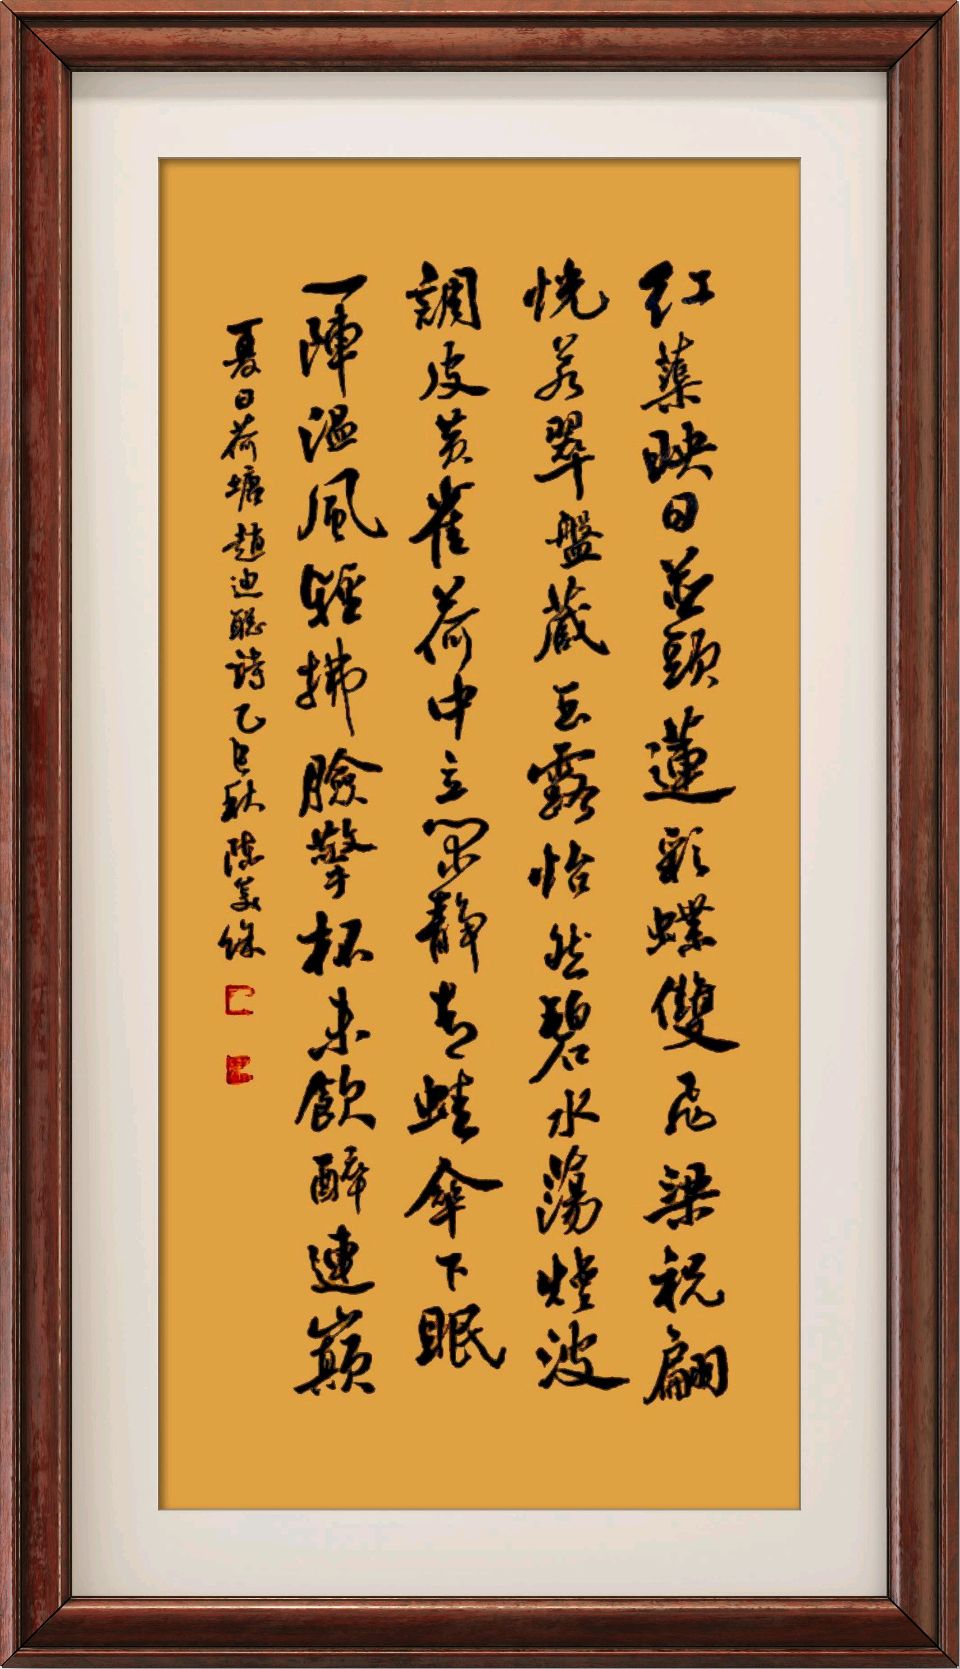 红蕖映日並頭蓮彩蝶雙飛梁祝翩
恍若翠盤蔵玉露怡然碧水蕩煙波
調皮黄雀荷中立閑靜青蛙傘下眠
一陣温風輕拂臉擎杯未飲醉連巔
夏日荷塘趙迪聰詩乙巳秋陈美